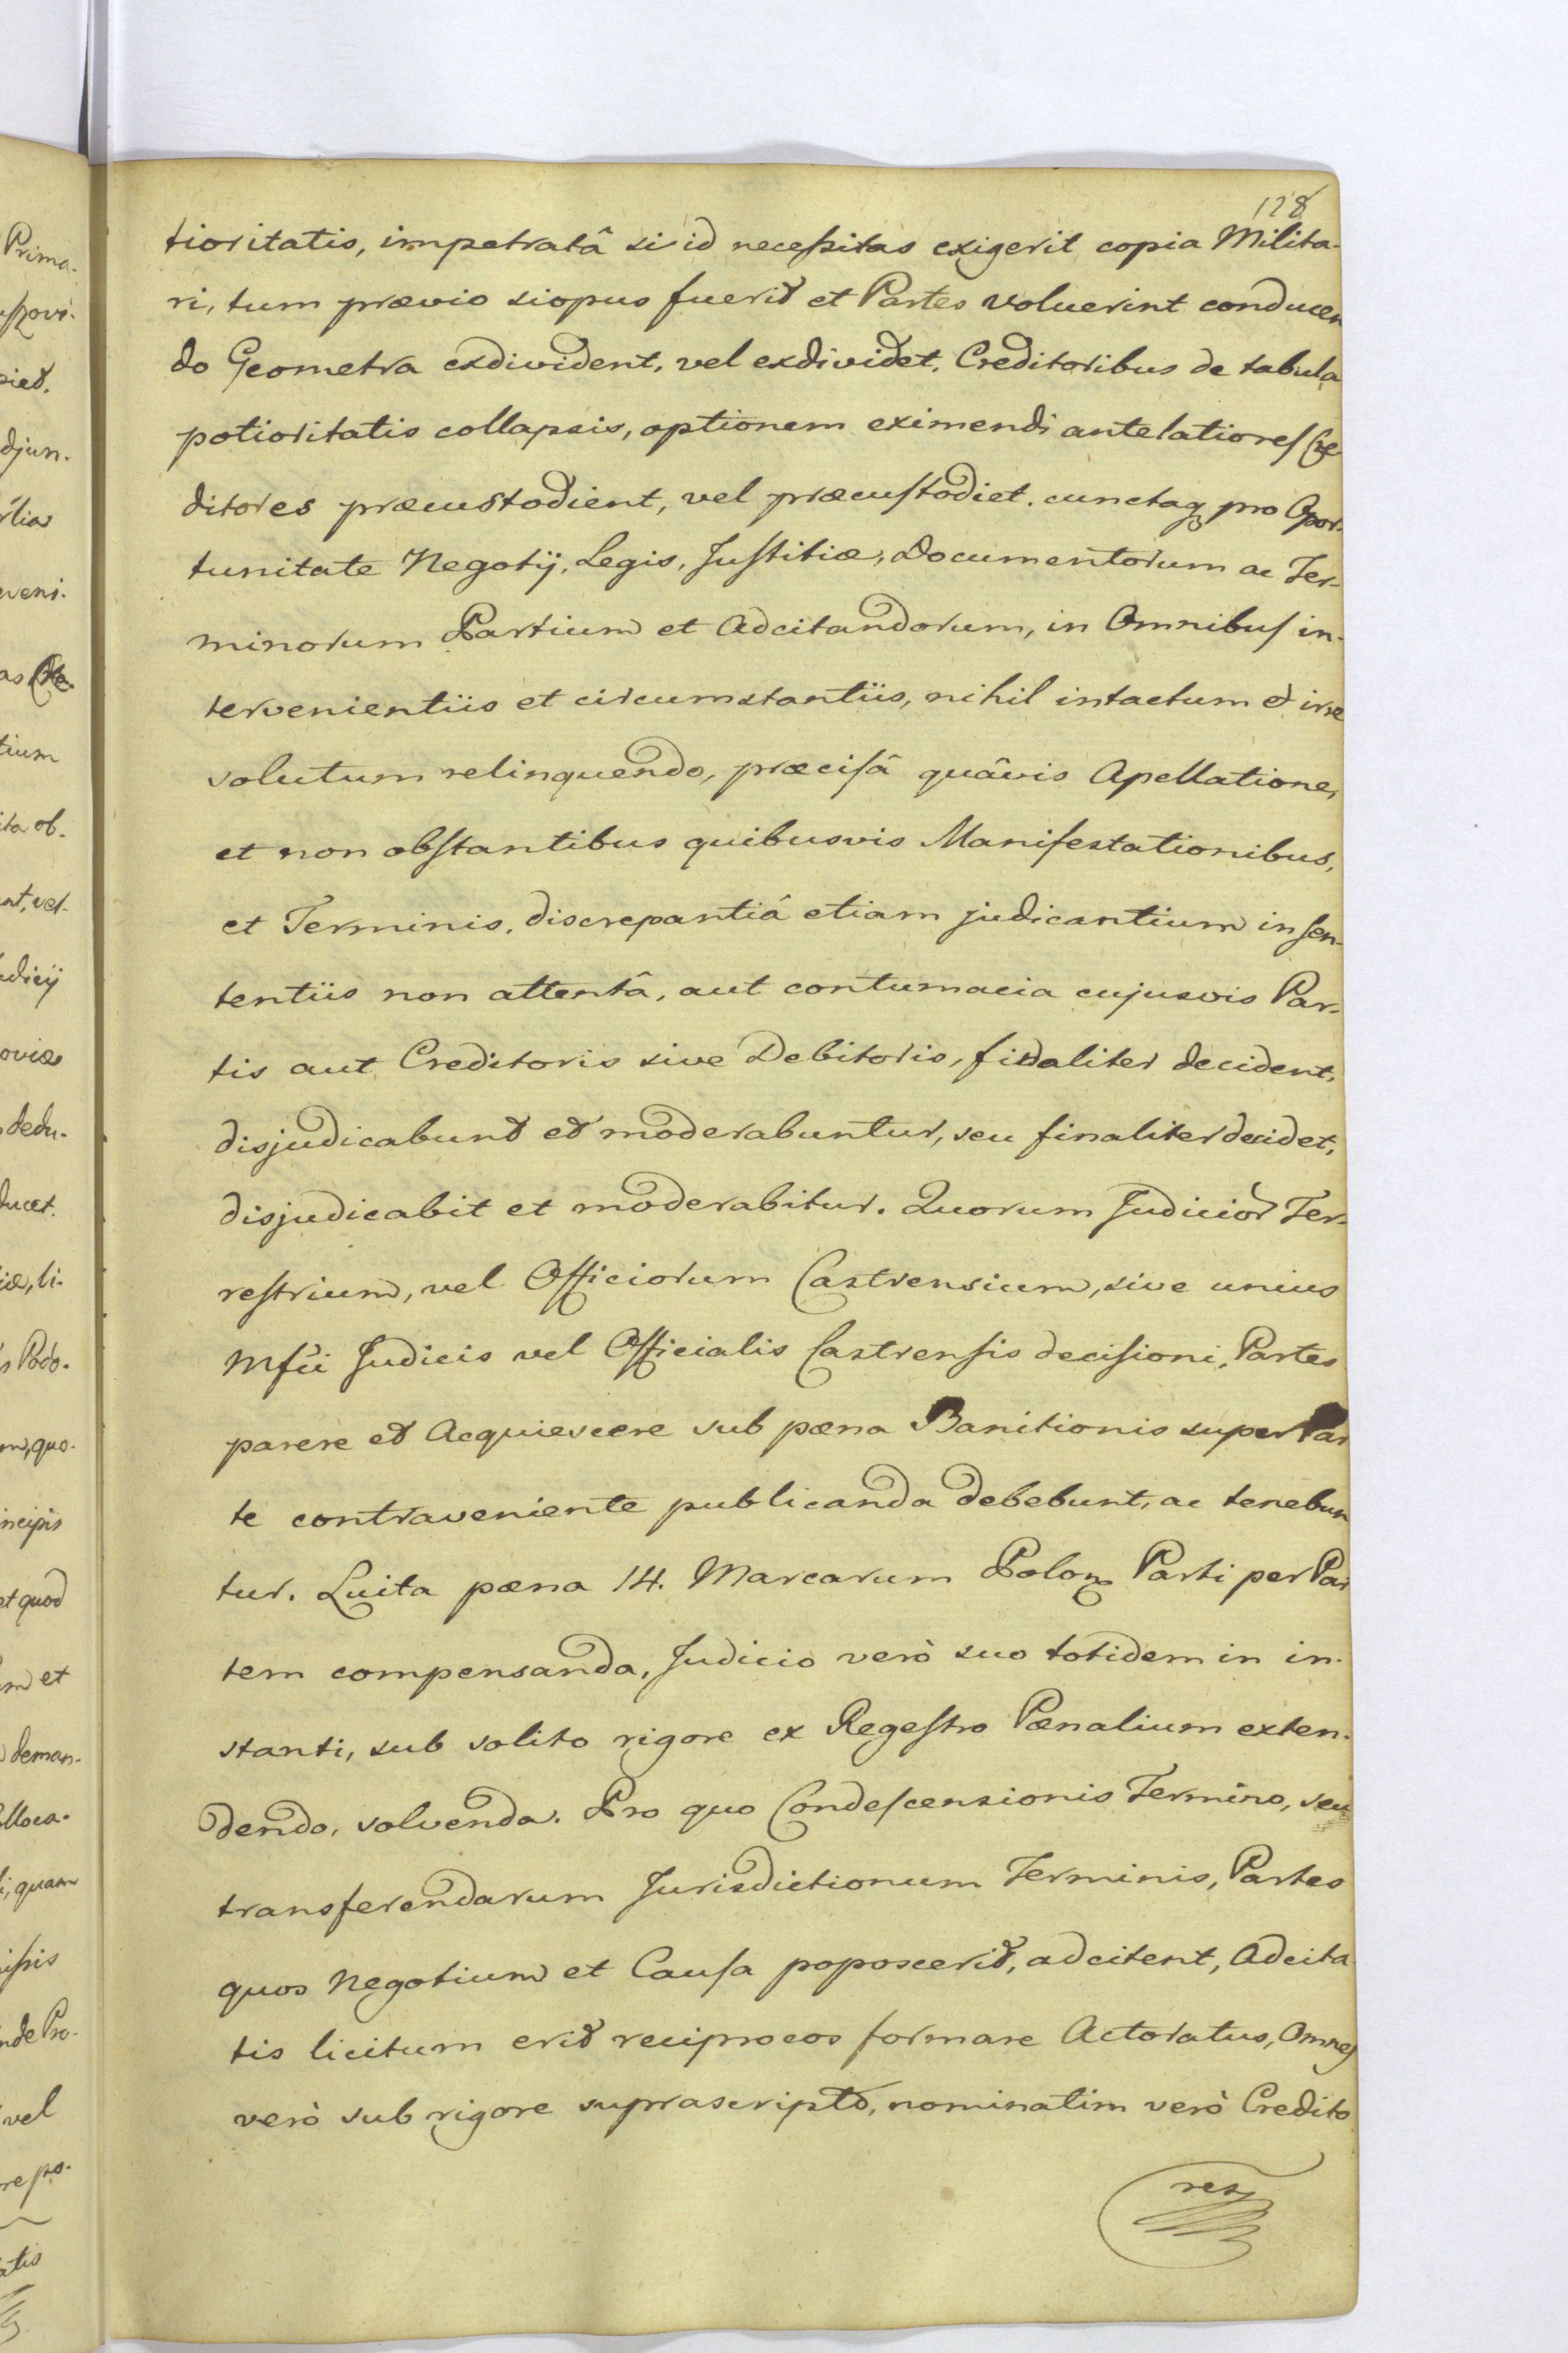 128
tioritatis, impetratâ si id necessitas exigerit copia Milita-
ri, tum prævio siopus fuerit et Partes voluerint conducen
do Geometra exdivident, vel exdividet. Creditoribus de tabula
potioritatis collapsis, optionem eximendi antelatiores Cre
ditores præcustodient, vel præcustodiet. cunctaq pro Opor-
tunitate Negotij, Legis, Justitiæ, Documentorum ac Ter-
minorum Partium et Adcitandorum, in Omnibus in-
tervenientiis et circumstantiis, nihil intactum et irre
solutum relinquendo, præcisâ quâvis Apellatione,
et non obstantibus quibusvis Manifestationibus,
et Terminis, discrepantiâ etiam judicantium in sen-
tentiis non attentâ, aut contumacia cujusvis Par-
tis aut Creditoris sive Debitoris, finaliter decident,
disjudicabunt et moderabuntur, seu finaliter decidet,
disjudicabit et moderabitur. Quorum Judicior Ter-
restrium, vel Officiorum Castrensium, sive unius
Mfci Judicis vel Officialis Castrensis decisioni, Partes
parere et Acquiescere sub pæna Banitionis super Par
te contraveniente publicanda debebunt, ac tenebun
tur. Luita pæna 14. Marcarum Polon Parti per Par
tem compensanda, Judicio verò suo totidem in in-
stanti, sub solito rigore ex Regestro Pænalium exten-
dendo, solvenda. Pro quo Condescensionis Termino, seu
transferendarum Jurisdictionum Terminis, Partes
quos Negotium et Causa poposcerit, adcitent, Adcita
tis licitum erit reciprocos formare Actoratus, Omnes
verò sub rigore suprascripto, nominatim verò Credito
res
Prima-
djun-
veni-
tium
ita ob-
nt, vel-
udicij
oviæ
dedu-
ducet.
iæ, li-
s Podo-
m, quo-
ncipis
et quod
m et
deman-
lloca-
i, quam
issis
nde Pro-
vel
re po-
atis